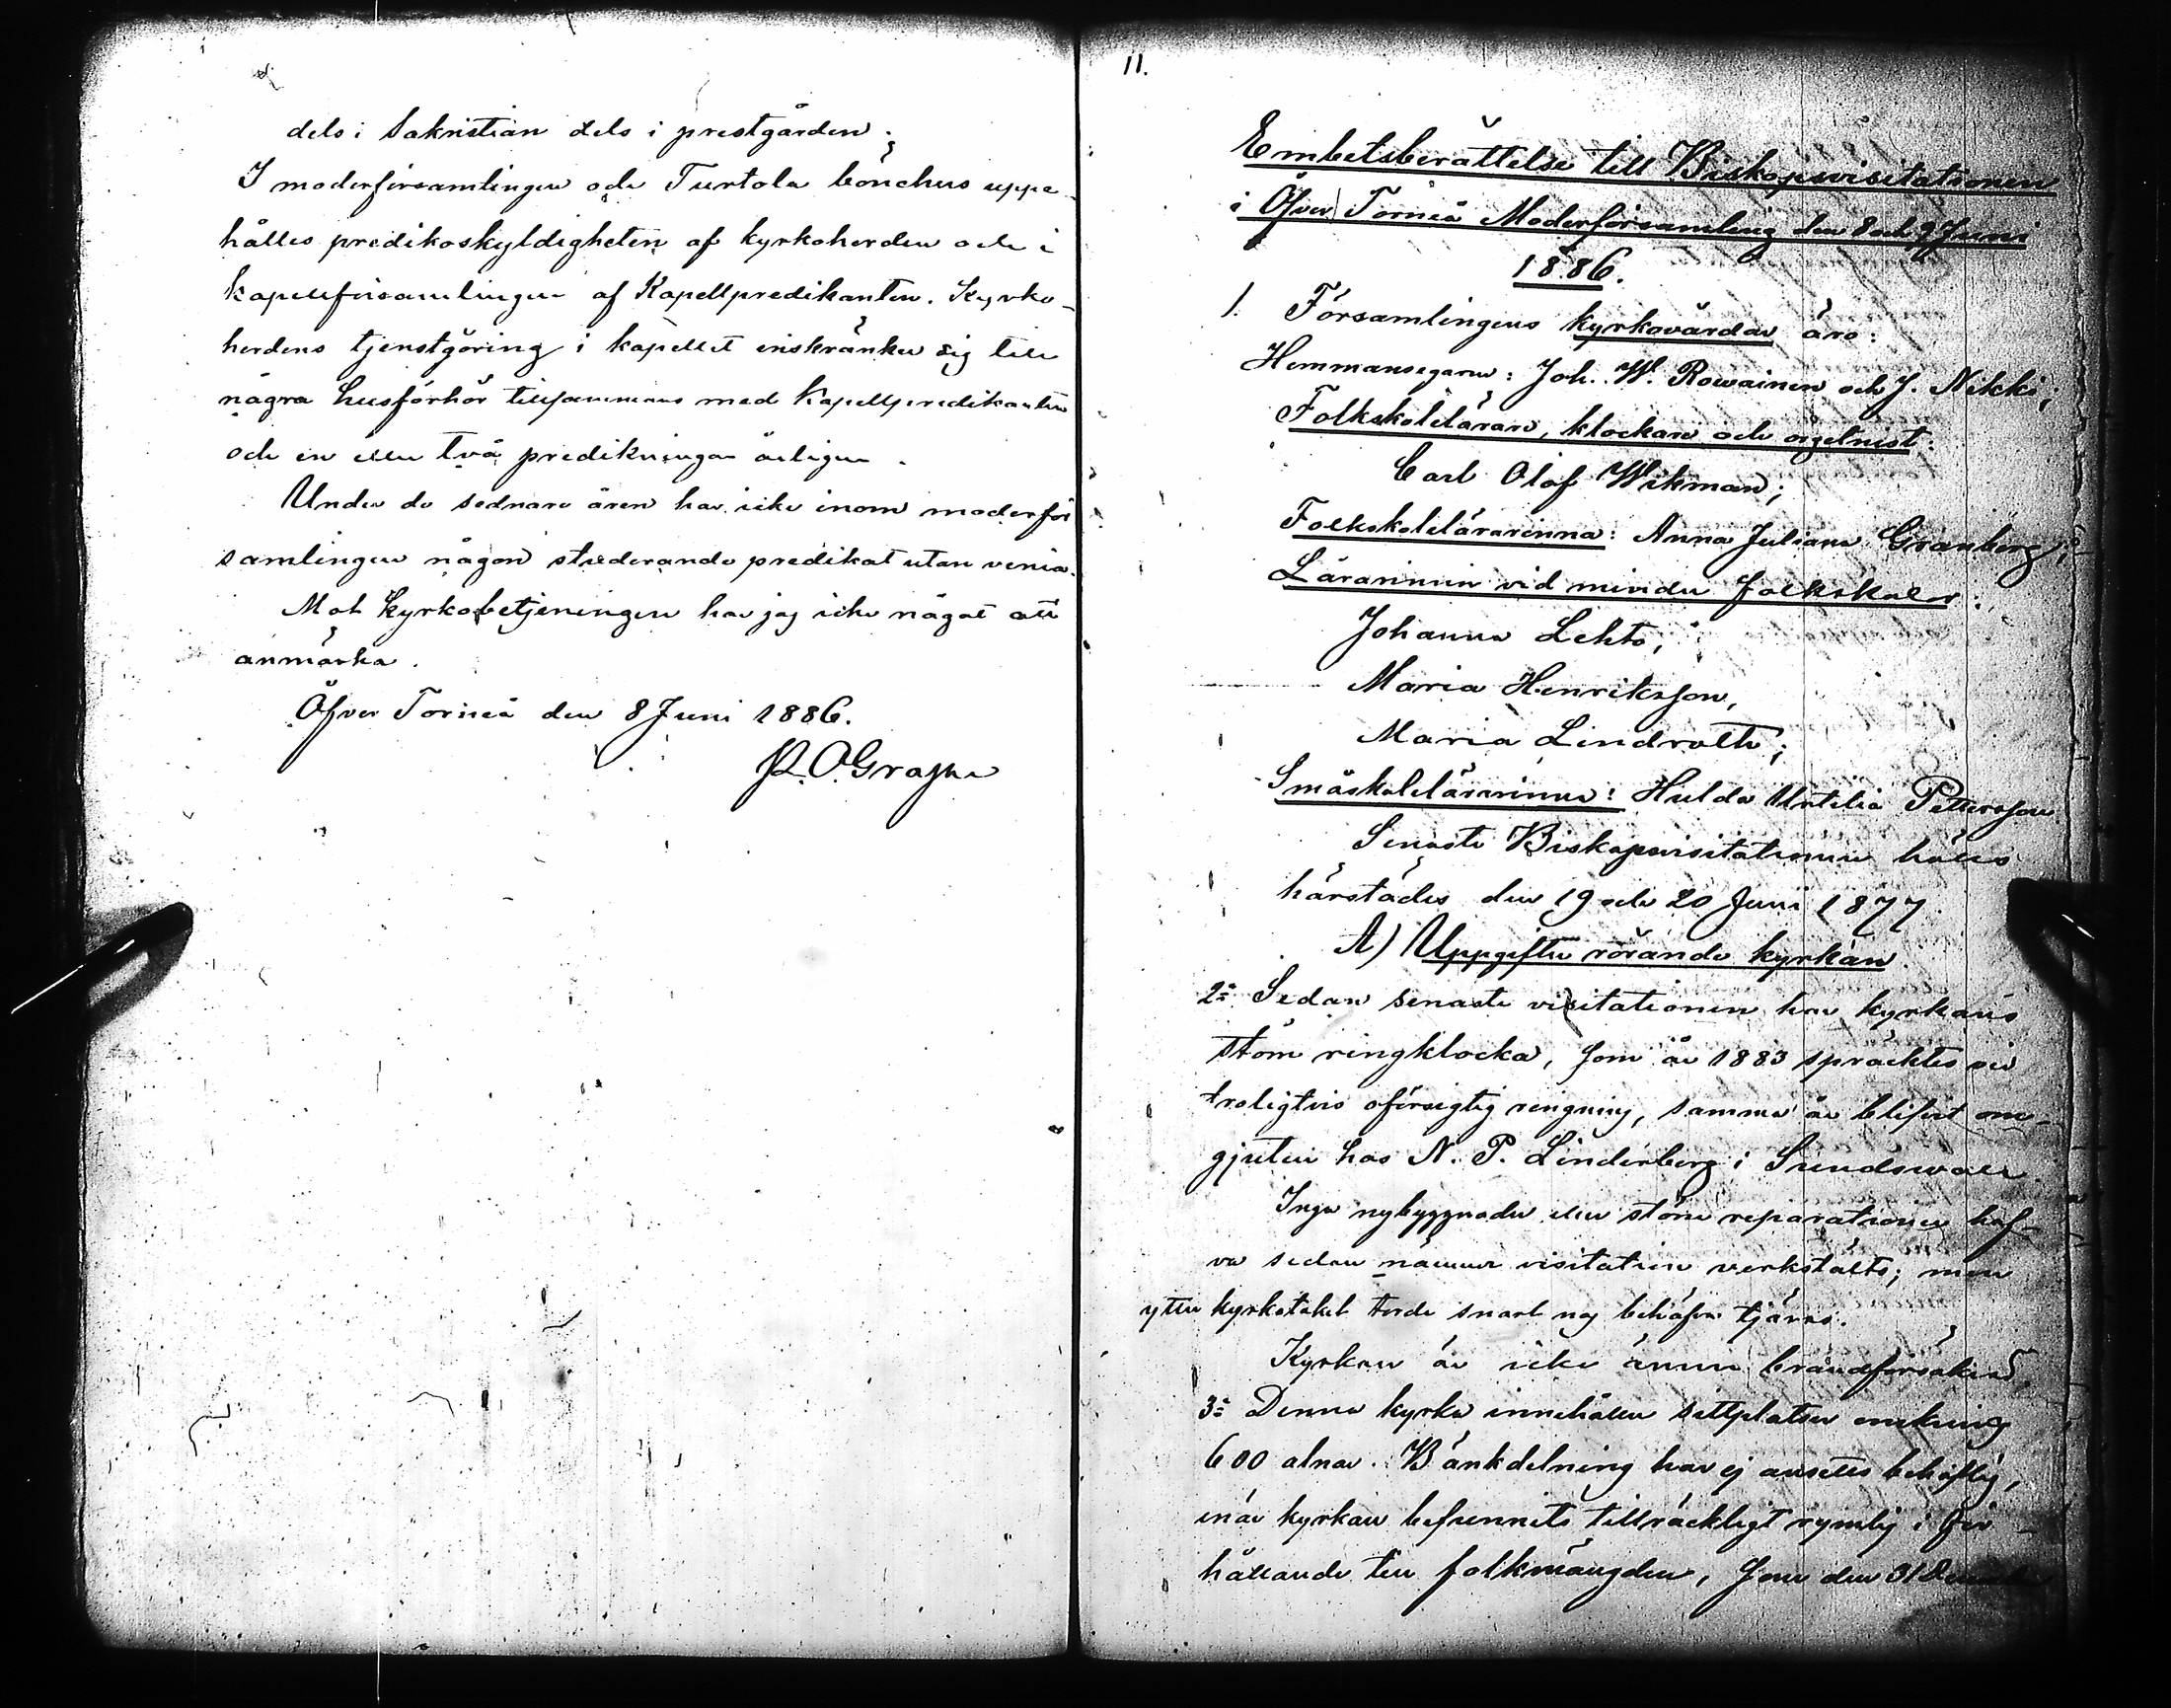 dels i Sakristian dels i prestgården;
I moderförsamlingen och Turtola bönehus uppe-
hålles predikoskyldigheten af kyrkoherden och i
kapellförsamlingen af Kapellpredikanten. Kyrko-
herdens tjenstgöring i kapellet inskränker sig till
några husförhör tillsammans med Kapellpredikanten
och en eller två predikningar årligen.
Under de sednare åren har icke inom moderför
samlingen någon studerande predikat utan venia.
Mot kyrkobetjeningen har jag icke något att
anmärka.
Öfver Torneå den 8 Juni 1886.
P. O. Grape
11.
Embetsberättelse till Biskopsvisitationen
i Öfver Torneå Moderförsamling den 8 och 9 Juni
1886.
1. Församlingens kyrkovärdar äro:
Hemmansegarne: Joh. W. Rowainen och J. Nikki;
Folkskolelärare, klockare och orgelnist:
Carl Olof Wikman;
Folkskolelärarinna: Anna Juliana Granberg;
Lärarinnor vid mindre folkskolor:
Johanna Lehto,
Maria Henriksson,
Maria Lindroth;
Småskolelärarinna: Hulda Pettersson
Senaste Biskopsvisitationen hölls
härstädes den 19 och 20 Juni 1877
A) Uppgifter rörande kyrkan.
2:o Sedan senaste visitationen har kyrkans
större ringklocka, som år 1883 spräcktes vid
troligtvis oförsigtig ringning, samma år blifvit om-
gjuten hos N. P. Linderberg i Sundswall.
Inga nybyggnader eller större reparationer haf-
va sedan nämnde visitation verkstälts; men
yttre kyrkotaket torde snart nog behöfva tjäras.
Kyrkan är icke ännu brandförsäkrad,
3:o Denna kyrka innehåller sittplatser omkring
600 alnar. Bänkdelning har ej ansetts behöflig,
enär kyrkan befunnits tillräckligt rymlig i för-
hållande till folkmängden, som den 31 December